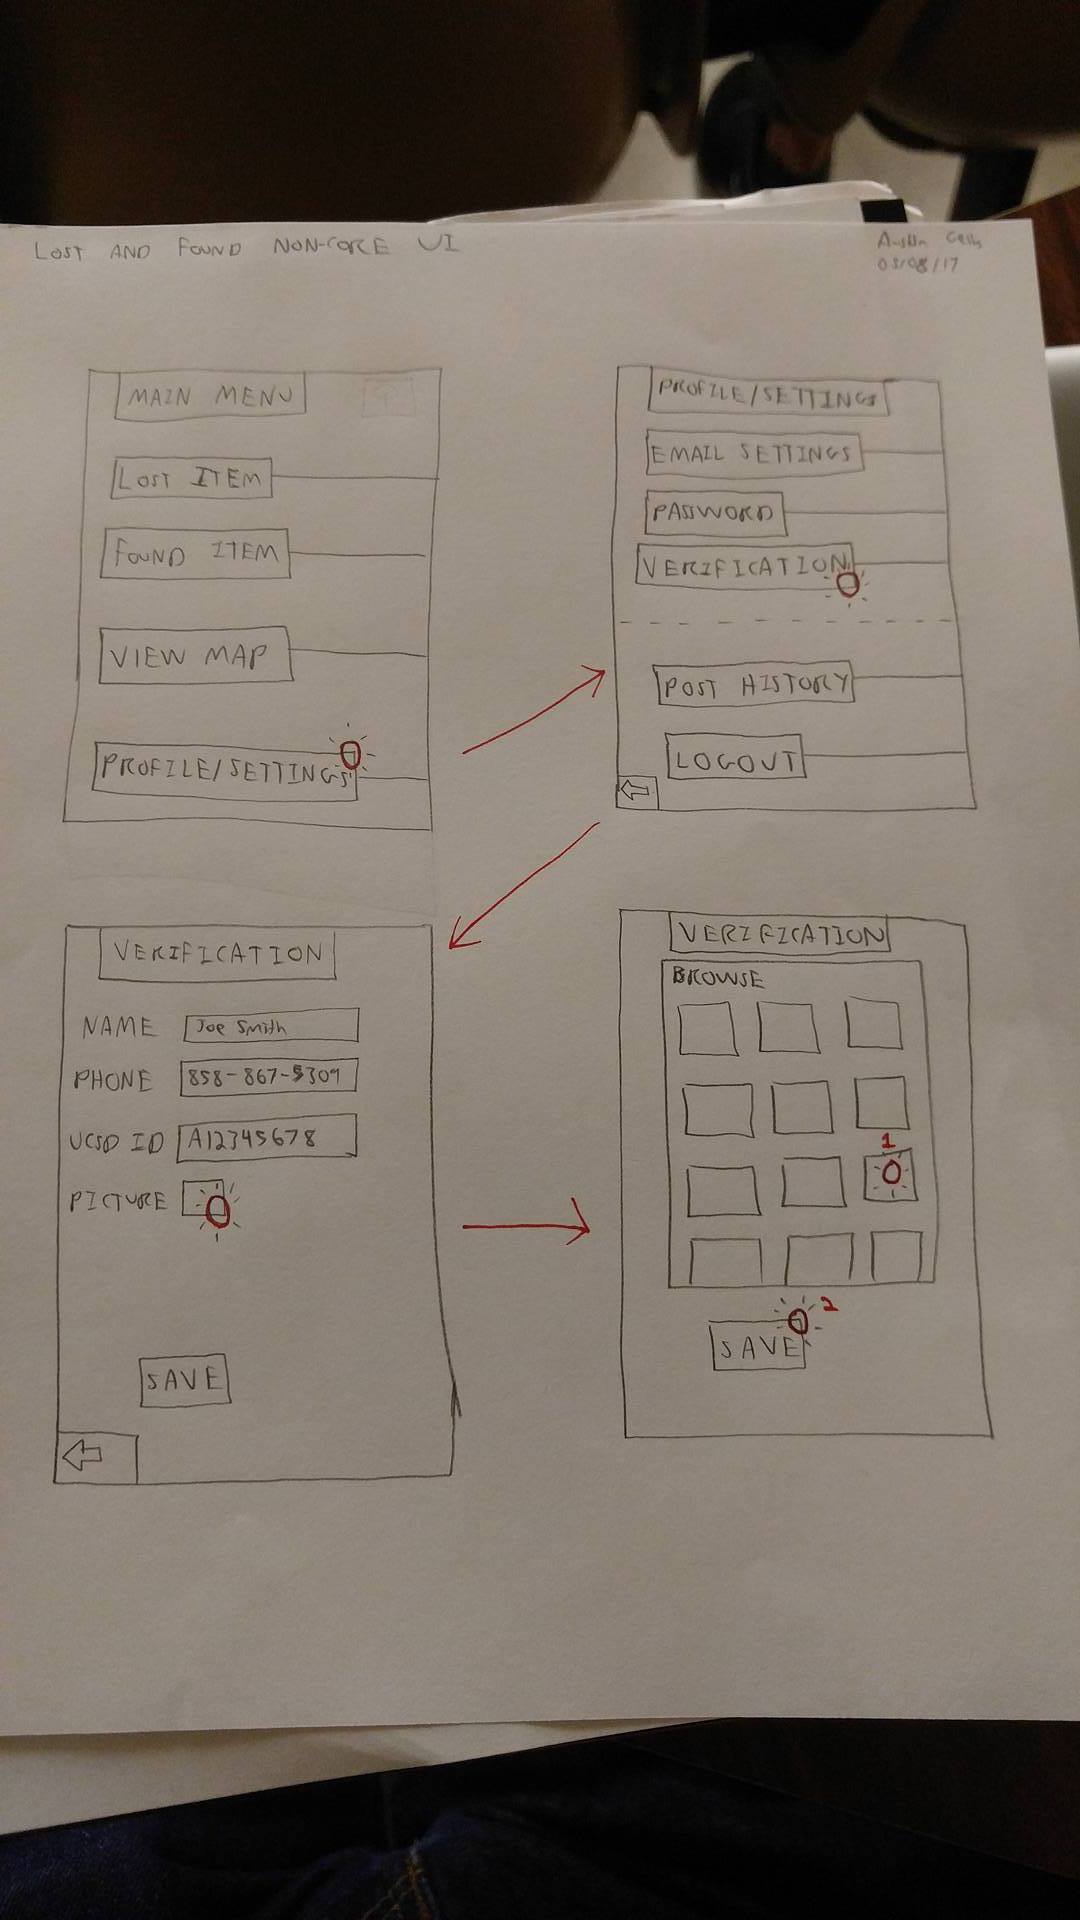 LOST AND FOUND NON-CORE UI
Austin
05/08/17
MAIN MENU
LOST ITEM
FOUND ITEM
VIEW MAP
PROFILE/SETTINGS
PROFILE/SETTINGS
EMAIL SETTINGS
PASSWORD
VERIFICATION
POST HISTORY
LOGOUT
VERIFICATION
NAME Joe Smith
PHONE 858-867-5309
UCSD ID A12345678
PICTURE
SAVE
VERIFICATION
BROWSE
1
2
SAVE